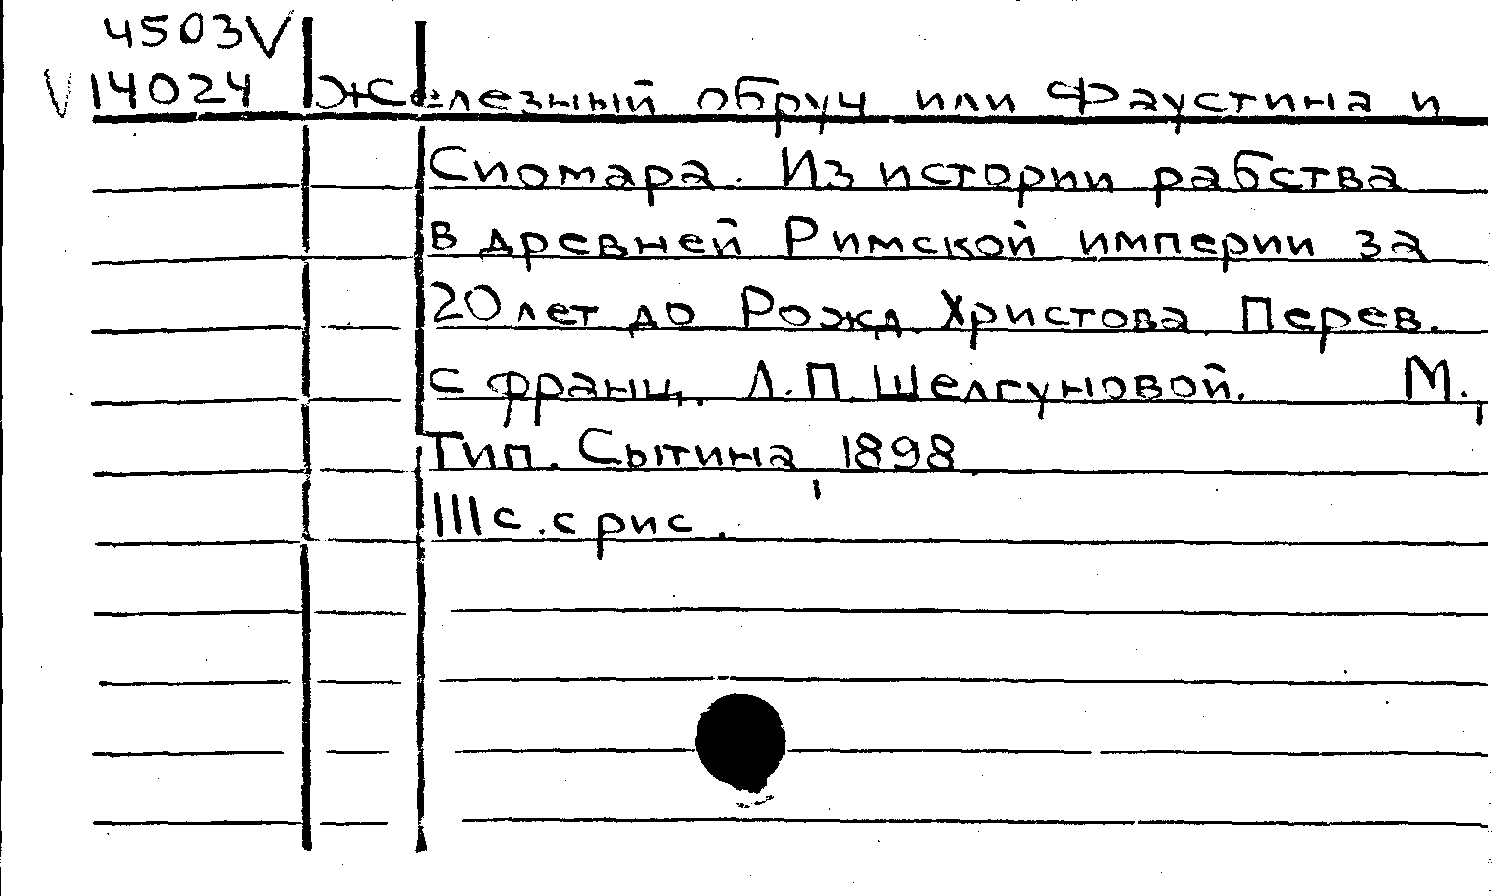 4503V
V14024 Железный обруч или Фаустина и
Сиомара. Из истории рабства
в древней Римской империи за
20 лет до Рожд. Христова. Перев.
с франц. Л.П. Шелгуновой. М.,
Тип. Сытина, 1898
111с. с рис.